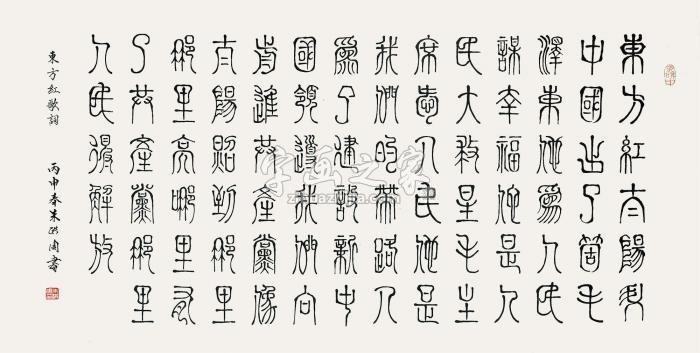 東方紅太陽升
中國出了箇毛
澤東他爲人民
謀幸福他是人
民大救星毛主
席愛人民他是
我們的帶路人
爲了建設新中
國領導我們向
前進共產黨像
太陽照到那里
那里亮哪里有
了共產黨那里
人民得解放
東方紅歌詞
丙申春朱
書
字画之家